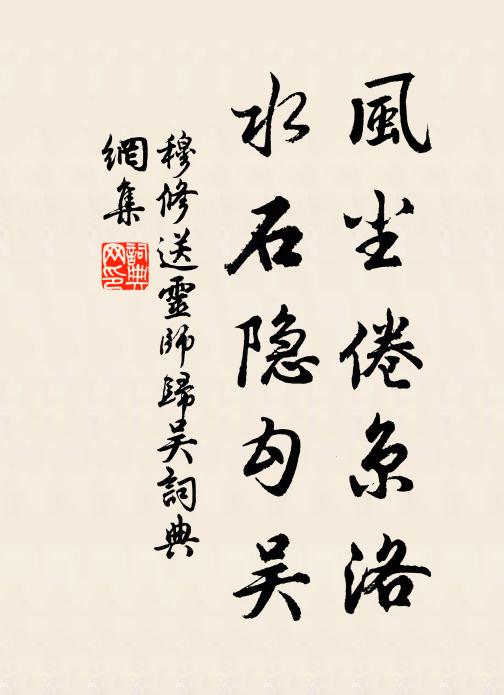 風尘倦京洛
水石隐勾吴
穆修送靈師歸吴詞典
網集
詞典網印